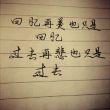 回忆再美也只是
回忆
过去再悲也只是
过去